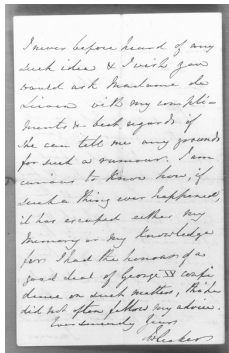 I never before heard of any
such idea & I wish you
would ask Madame de
Lieven with my compli-
ments & best regards if
She can tell me any grounds
for such a rumour. I am
curious to know how, if
such a thing ever happened,
it has escaped either my
Memory or my Knowledge
for I had the honour of a
good deal of George IV confi
dence on such matters, tho' he
did not often follow my advice.
Ever sincerely yours